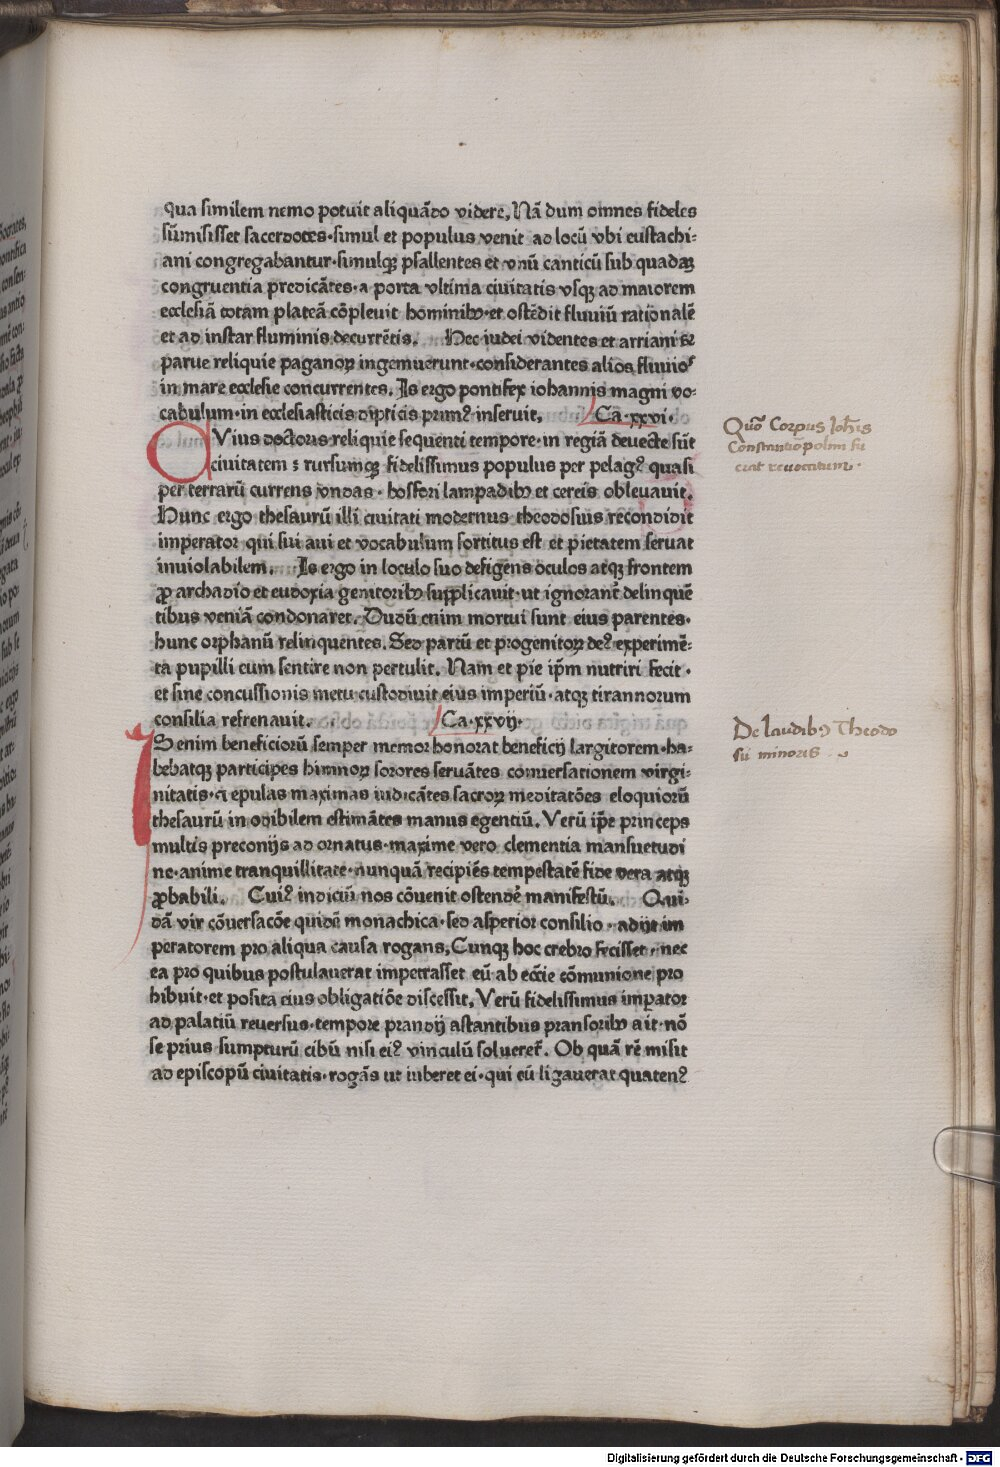 qua similem nemo potuit aliquãdo videre. Nã dum omnes fideles
sũmisisset sacerdotes·simul et populus venit ad locũ vbi eustachi⸗
ani congregabantur·simulqꝫ psallentes et vnũ canticũ sub quadaꝫ
congruentia predicãtes·a porta vltima ciuitatis vsqꝫ ad maiorem
ecclesiã totam plateã cõpleuit hominibꝰ·et ostẽdit fluuiũ rationalẽ
et ad instar fluminis decurrẽtis. Hec iudei videntes et arriani sꝫ
parue reliquie paganoꝝ ingemuerunt·considerantes alios fluuios
in mare ecclesie concurrentes. Is ergo pontifex iohannis magni vo⸗
cabulum·in ecclesiasticis dipticis primꝰ inseruit. Ca·xxvi·
CVius doctoris reliquie sequenti tempore·in regiã deuecte sũt
ciuitatem : rursumqꝫ fidelissimus populus per pelagꝰ quasi
per terrarũ currens vndas·bosfori lampadibꝰ et cereis obleuauit.
Hunc ergo thesaurũ illi ciuitati modernus theodosius recondidit
imperator qui sui aui et vocabulum sortitus est et pietatem seruat
inuiolabilem. Is ergo in loculo suo defigens oculos atqꝫ frontem
ꝓ archadio et eudoxia genitoribꝰ supplicauit·ut ignorant̃ delinquẽ
tibus veniã condonaret. Dudũ enim mortui sunt eius parentes·
hunc orphanũ relinquentes. Sed partũ et progenitoꝝ deꝰ experimẽ⸗
ta pupilli eum sentire non pertulit. Nam et pie ip̃m nutriri fecit·
et sine concussionis metu custodiuit eius imperiũ·atqꝫ tirannorum
consilia refrenauit. Ca·xxvij·
IS enim beneficiorũ semper memor honorat beneficij largitorem·ha⸗
bebatqꝫ participes himnoꝝ sorores seruãtes conuersationem virgi⸗
nitatis·et epulas maximas iudicãtes sacroꝝ meditatões eloquiorũ
thesaurũ inmobilem estimãtes manus egentiũ. Verũ ip̃e princeps
multis preconijs adornatus·maxime vero clementia mansuetudi
ne·anime tranquillitate·nunquã recipiẽs tempestatẽ fide vera atqꝫ
ꝓbabili. Cuiꝰ indiciũ nos cõuenit ostendẽ manifestũ. Qui⸗
dã vir cõuersacõe quidẽ monachica·sed asperior consilio·adijt im
peratorem pro aliqua causa rogans. Cunqꝫ hoc crebro fecisset·nec
ea pro quibus postulauerat impetrasset eũ ab ecc̃ie cõmunione pro
hibuit·et posita eius obligatiõe discessit. Verũ fidelissimus imꝑator
ad palatiũ reuersus·tempore prandij astantibus pransoribꝰ ait·nõ
se prius sumpturũ cibũ nisi eiꝰ vinculũ soluereť. Ob quã rẽ misit
ad episcopũ ciuitatis·rogãs ut iuberet ei·qui eũ ligauerat quatenꝰ
Quõ Corpus Joh̃is
Constantinopolim fu
erat reuocatum·
De laudibꝰ Theodo
sii minoris
Digitalisierung gefördert durch die Deutsche Forschungsgemeinschaft - DFG